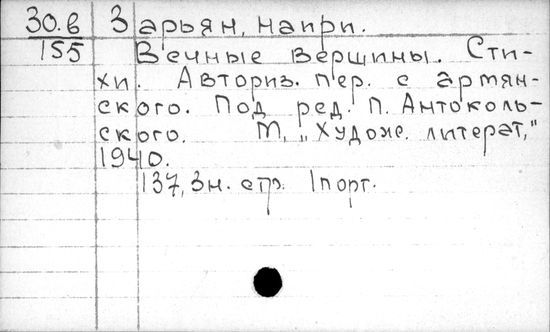 30.6 Зарьян, Наири.
155 Вечные вершины. Сти-
хи. Авториз. пер. с армян-
ского. Под ред. П. Антоколь-
ского. М, „Худож. литерат,"
1940.
137, 3 н. стр. 1 порт.